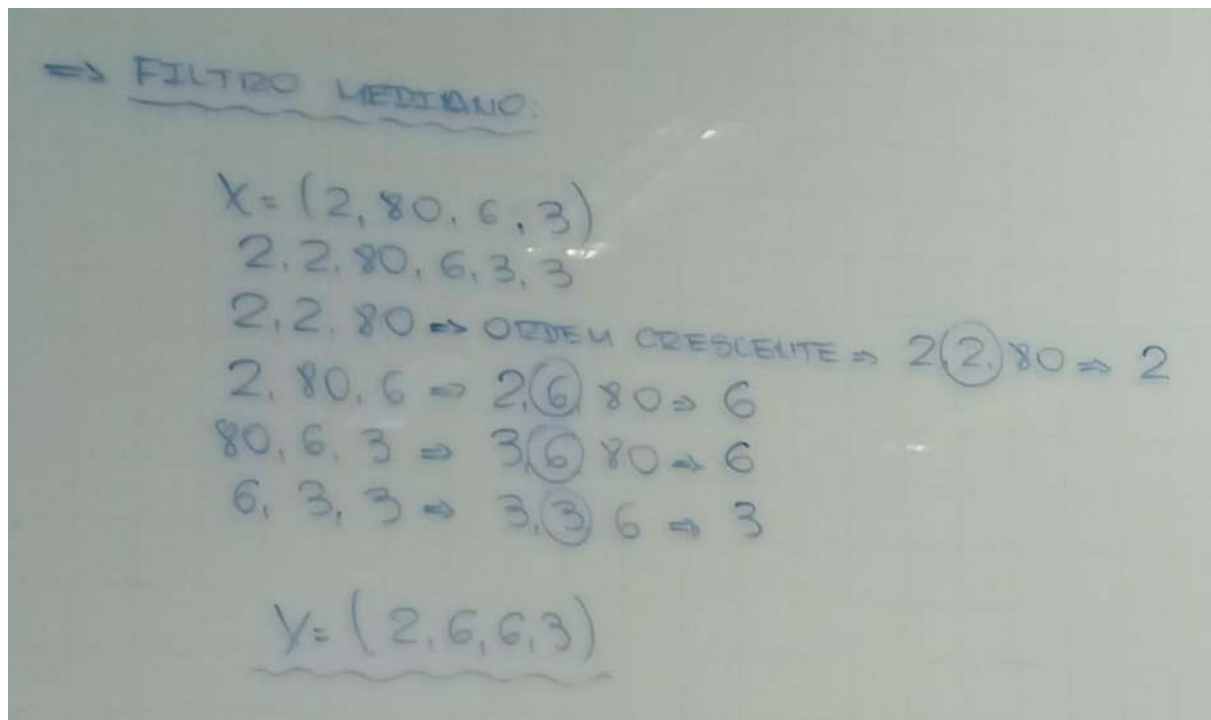 => FILTRO MEDIANO:
X=(2,80,6,3)
2,2,80,6,3,3
2,2,80 => ORDEM CRESCENTE => 2,2,80 => 2
2,80,6 => 2,6,80 => 6
80,6,3 => 3,6,80 => 6
6,3,3 => 3,3,6 => 3
Y=(2,6,6,3)